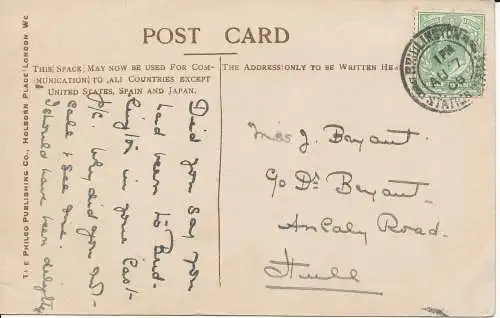 POST CARD
THIS SPACE MAY NOW BE USED FOR COM-
MUNICATION TO ALL COUNTRIES EXCEPT
UNITED STATES, SPAIN AND JAPAN.
THE ADDRESS ONLY TO BE WRITTEN HE
BRIDLINGTON
1 PM
AU 7
STATION
THE PHILCO PUBLISHING CO., HOLBORN PLACE, LONDON WC
Did you say you
had been to Brid-
lington in your last
P/C. Why did you not
call & see me.
I should have been delighted
Miss J. Bryant,
c/o Dr Bryant,
Anlaby Road.
Hull